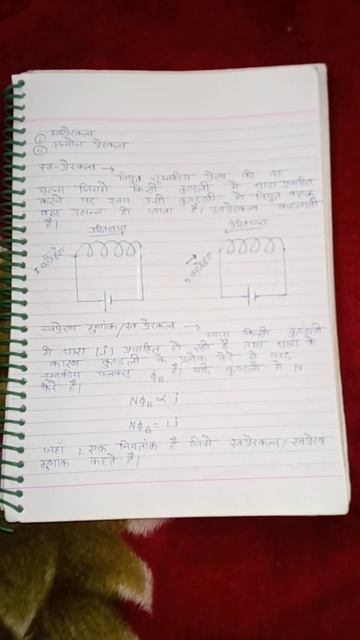 (i) स्वप्रेरकत्व
(ii) अन्योन्य प्रेरकत्व
स्व-प्रेरकत्व →
विद्युत चुम्बकीय प्रेरण की वह
घटना जिसमे किसी कुण्डली मे धारा प्रवाहित
करने पर स्वयं उसी कुण्डली मे विद्युत वाहक
बल उत्पन्न हो जाता है। स्वप्रेरकत्व कहलाती
है।
स्वप्रेरण गुणांक/स्व प्रेरकत्व →
माना किसी कुण्डली
मे धारा (i) प्रवाहित हो रही है तथा धारा के
कारण कुण्डली के प्रत्येक फेरे से बद्ध
चुम्बकीय फ्लक्स ϕB है। यदि कुण्डली मे N
फेरे है।
NϕB ∝ i
NϕB = Li
जहाँ L एक नियतांक है जिसे स्वप्रेरकत्व/स्वप्रेरण
गुणांक कहते है।